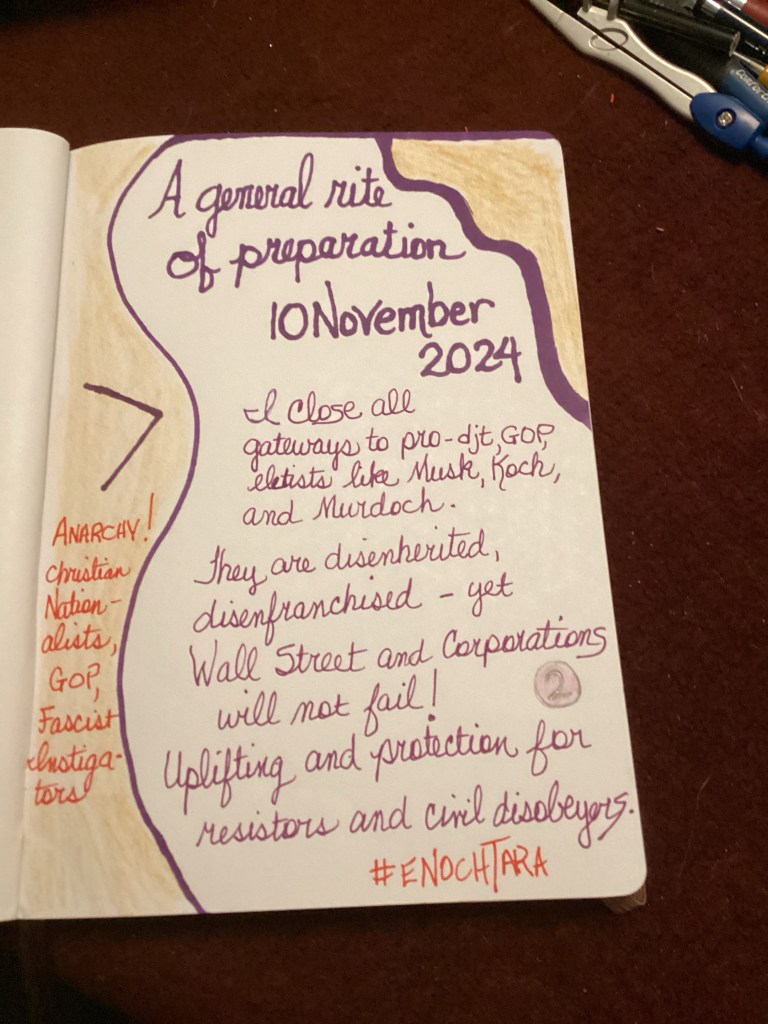 A general rite
of preparation
10 November
2024
I close all
gateways to pro-djt, GOP,
eletists like Musk, Koch,
and Murdoch.
They are disenherited,
disenfranchised - yet
Wall Street and Corporations
will not fail!
2
Uplifting and protection for
resistors and civil disobeyers.
#ENOCHTARA
>
ANARCHY!
Christian
Nation-
alists,
GOP,
Fascist
Instiga-
tors